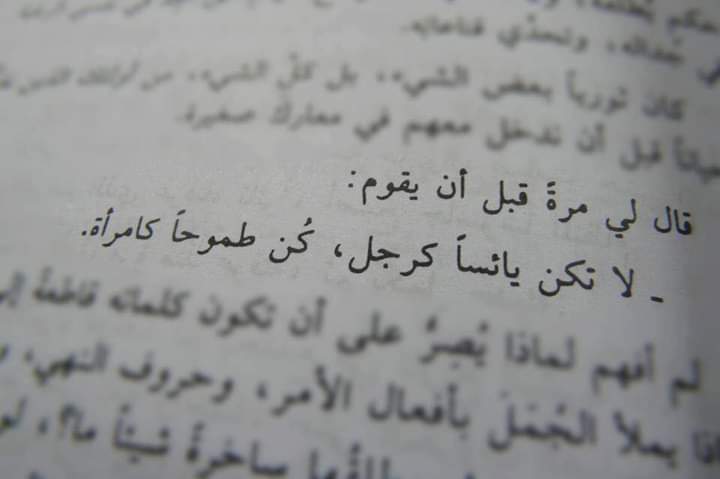 في جداله، وتحدّي قناعاته.
كان ثورياً بعض الشيء، بل كلّ الشيء، من أولئك الذين
قبل أن ندخل معهم في معارك صغيرة.
قال لي مرةً قبل أن يقوم:
- لا تكن يائساً كرجل، كُن طموحاً كامرأة.
لم أفهم لماذا يُصِرُّ على أن تكون كلماته قاطعةً
يملأ الجُمَلَ بأفعال الأمر، وحروف النهي،
ساخرةً شيئاً ما؟،